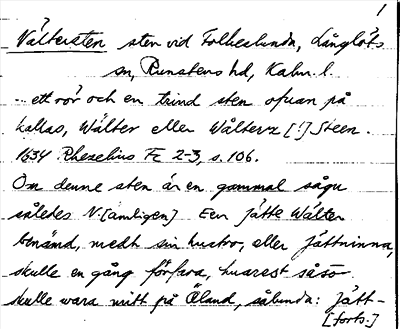 1
Vältersten sten vid Folkeslunda, Långlöts
sn, Runstens hd, Kalm. l.
... ett rör och en trind sten ofuan på
kallas, Wälter eller Wälterz [!] Steen.
1634 Rhezelius Fc 2-3, s. 106.
Om denne sten är en gammal sågu
således N[ämligen] Een Jätte Wälter
benämd, medh sin hustro, eller Jättninna,
skulle en gång förfara, huarest så
skulle wara mitt på Öland, sålunda: Jätt-
[forts.]